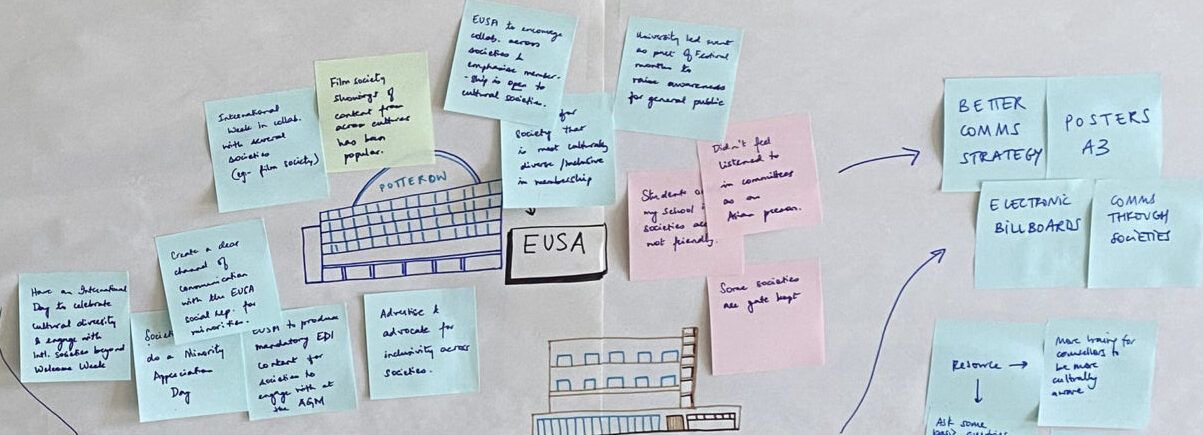 EUSA to encourage
collab. across
societies &
emphasise member-
-ship is open to
cultural societies.
University led event
as part of Festival
month to
raise awareness
for general public
Film society
showings of
content from
across cultures
has been
popular.
International
Week in collab.
with several
societies
(eg- film society)
for
Society that
is most culturally
diverse/inclusive
in membership
Didn't feel
listened to
in committees
as an
Asian person.
Students
my school
societies
not friendly.
POTTEROW
EUSA
Some societies
are gate kept
Create a clear
channel of
communication
with the EUSA
social rep. for
minorities.
Have an International
Day to celebrate
cultural diversity
& engage with
Intl. Societies beyond
Welcome Week
do a Minority
Appreciation
Day
EUSA to produce
mandatory EDI
content for
societies to
engage with at
the AGM
Advertise &
advocate for
inclusivity across
societies.
BETTER
COMMS
STRATEGY
POSTERS
A3
ELECTRONIC
BILLBOARDS
COMMS
THROUGH
SOCIETIES
Resource →
↓
Ask some
More training for
counsellors to
be more
culturally
aware